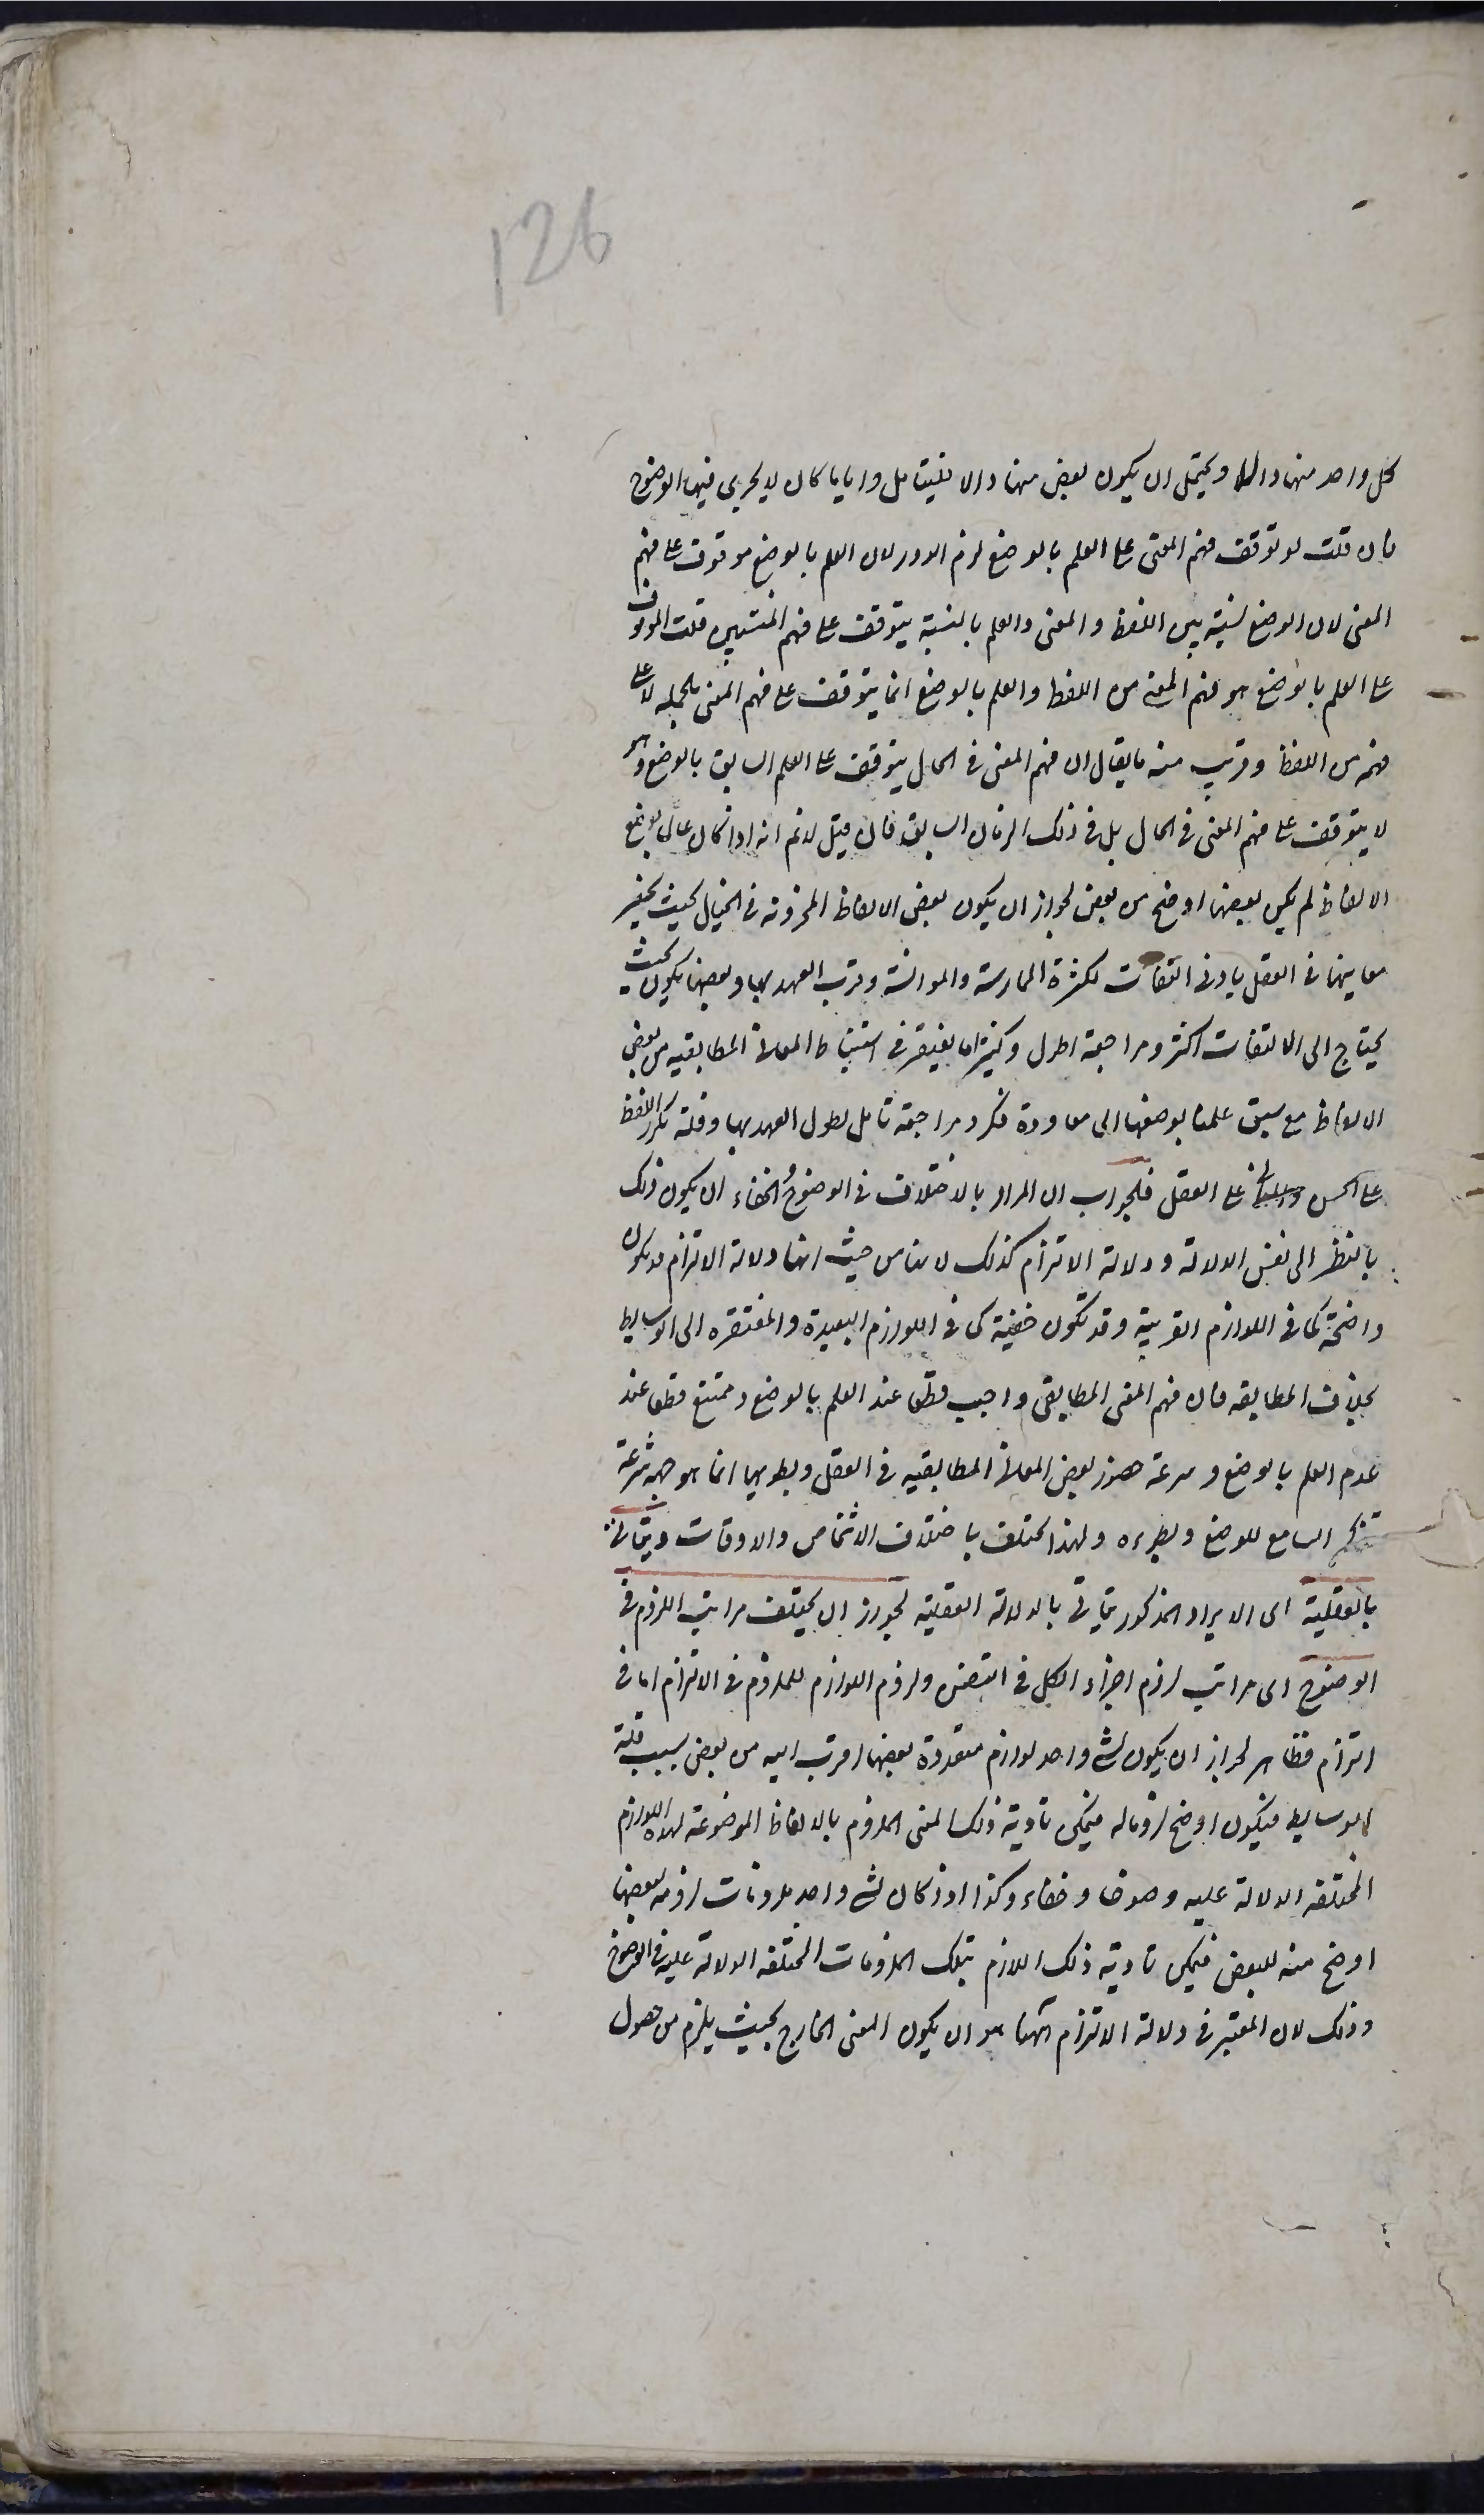 126
كل واحد منها دالا ويحتمل ان يكون بعض منها دالا فليتامل وايا ما كان لا يجرى فيها الوضوح
فان قلت لو توقف فهم المعنى على العلم بالوضع لزم الدور لان العلم بالوضع موقوف على فهم
المعنى لان الوضع نسبة بين اللفظ و المعنى والعلم بالنسبة يتوقف على فهم المنتسبين قلت الموقوف
على العلم بالوضع هو فهم المعنى من اللفظ والعلم بالوضع انما يتوقف على فهم المعنى بالجملة لا على
فهمه من اللفظ وقريب منه ما يقال ان فهم المعنى فى الحال يتوقف على العلم السابق بالوضع وهو
لا يتوقف على فهم المعنى فى الحال بل فى ذلك الزمان السابق فان قيل لا نم انه اذا كان عالما بوضع
الالفاظ لم يكن بعضها اوضح من بعض لجواز ان يكون بعض الالفاظ المخزونة فى الخيال بحيث يحضر
معانيها فى العقل بادنى التفات لكثرة الممارسة والموانسة وقرب العهد بها وبعضها يكون بحيث
يحتاج الى التفات اكثر ومراجعة اطول وكثيرا ما يفتقر فى استنباط المعانى المطابقيه من بعض
الالفاظ مع سبق علمنا بوضعها الى معاودة فكر ومراجعة تامل لطول العهد بها وقلة تكرر اللفظ
على الحس والمعانى على العقل فالجواب ان المراد بالاختلاف فى الوضوح والخفاء ان يكون ذلك
بالنظر الى نفس الدلالة و دلالة الالتزام كذلك لانها من حيث انها دلالة الالتزام قد تكون
واضحة كما فى اللوازم القريبة وقد تكون خفية كما فى اللوازم البعيدة والمفتقره الى الوسايط
بخلاف المطابقه فان فهم المعنى المطابقى واجب قطعا عند العلم بالوضع وممتنع قطعا عند
عدم العلم بالوضع وسرعة حضور بعض المعانى المطابقيه فى العقل وبطوءها انما هو من جهة سرعة
تذكر السامع للوضع وبطوءه ولهذا يختلف باختلاف الاشخاص والاوقات ويتاتى
بالعقلية اى الايراد المذكور يتاتى بالدلالة العقلية لجواز ان يختلف مراتب اللزوم فى
الوضوح اى مراتب لزوم اجزاء الكل فى التضمن ولزوم اللوازم للملزوم فى الالتزام اما فى
التزام فظاهر لجواز ان يكون لشئ واحد لوازم متعددة بعضها اقرب اليه من بعض بسبب قلة
الوسايط فيكون اوضح لزوما له فيمكن تادية ذلك المعنى الملزوم بالالفاظ الموضوعة لهذه اللوازم
المختلفه الدلالة عليه وضوحا وخفاء وكذا اذا كان لشئ واحد ملزومات لزومه لبعضها
اوضح منه للبعض فيمكن تادية ذلك اللازم بتلك الملزومات المختلفه الدلالة عليه فى الوضوح
وذلك لان المعتبر فى دلالة الالتزام ههنا هو ان يكون المعنى الخارج بحيث يلزم من حصول